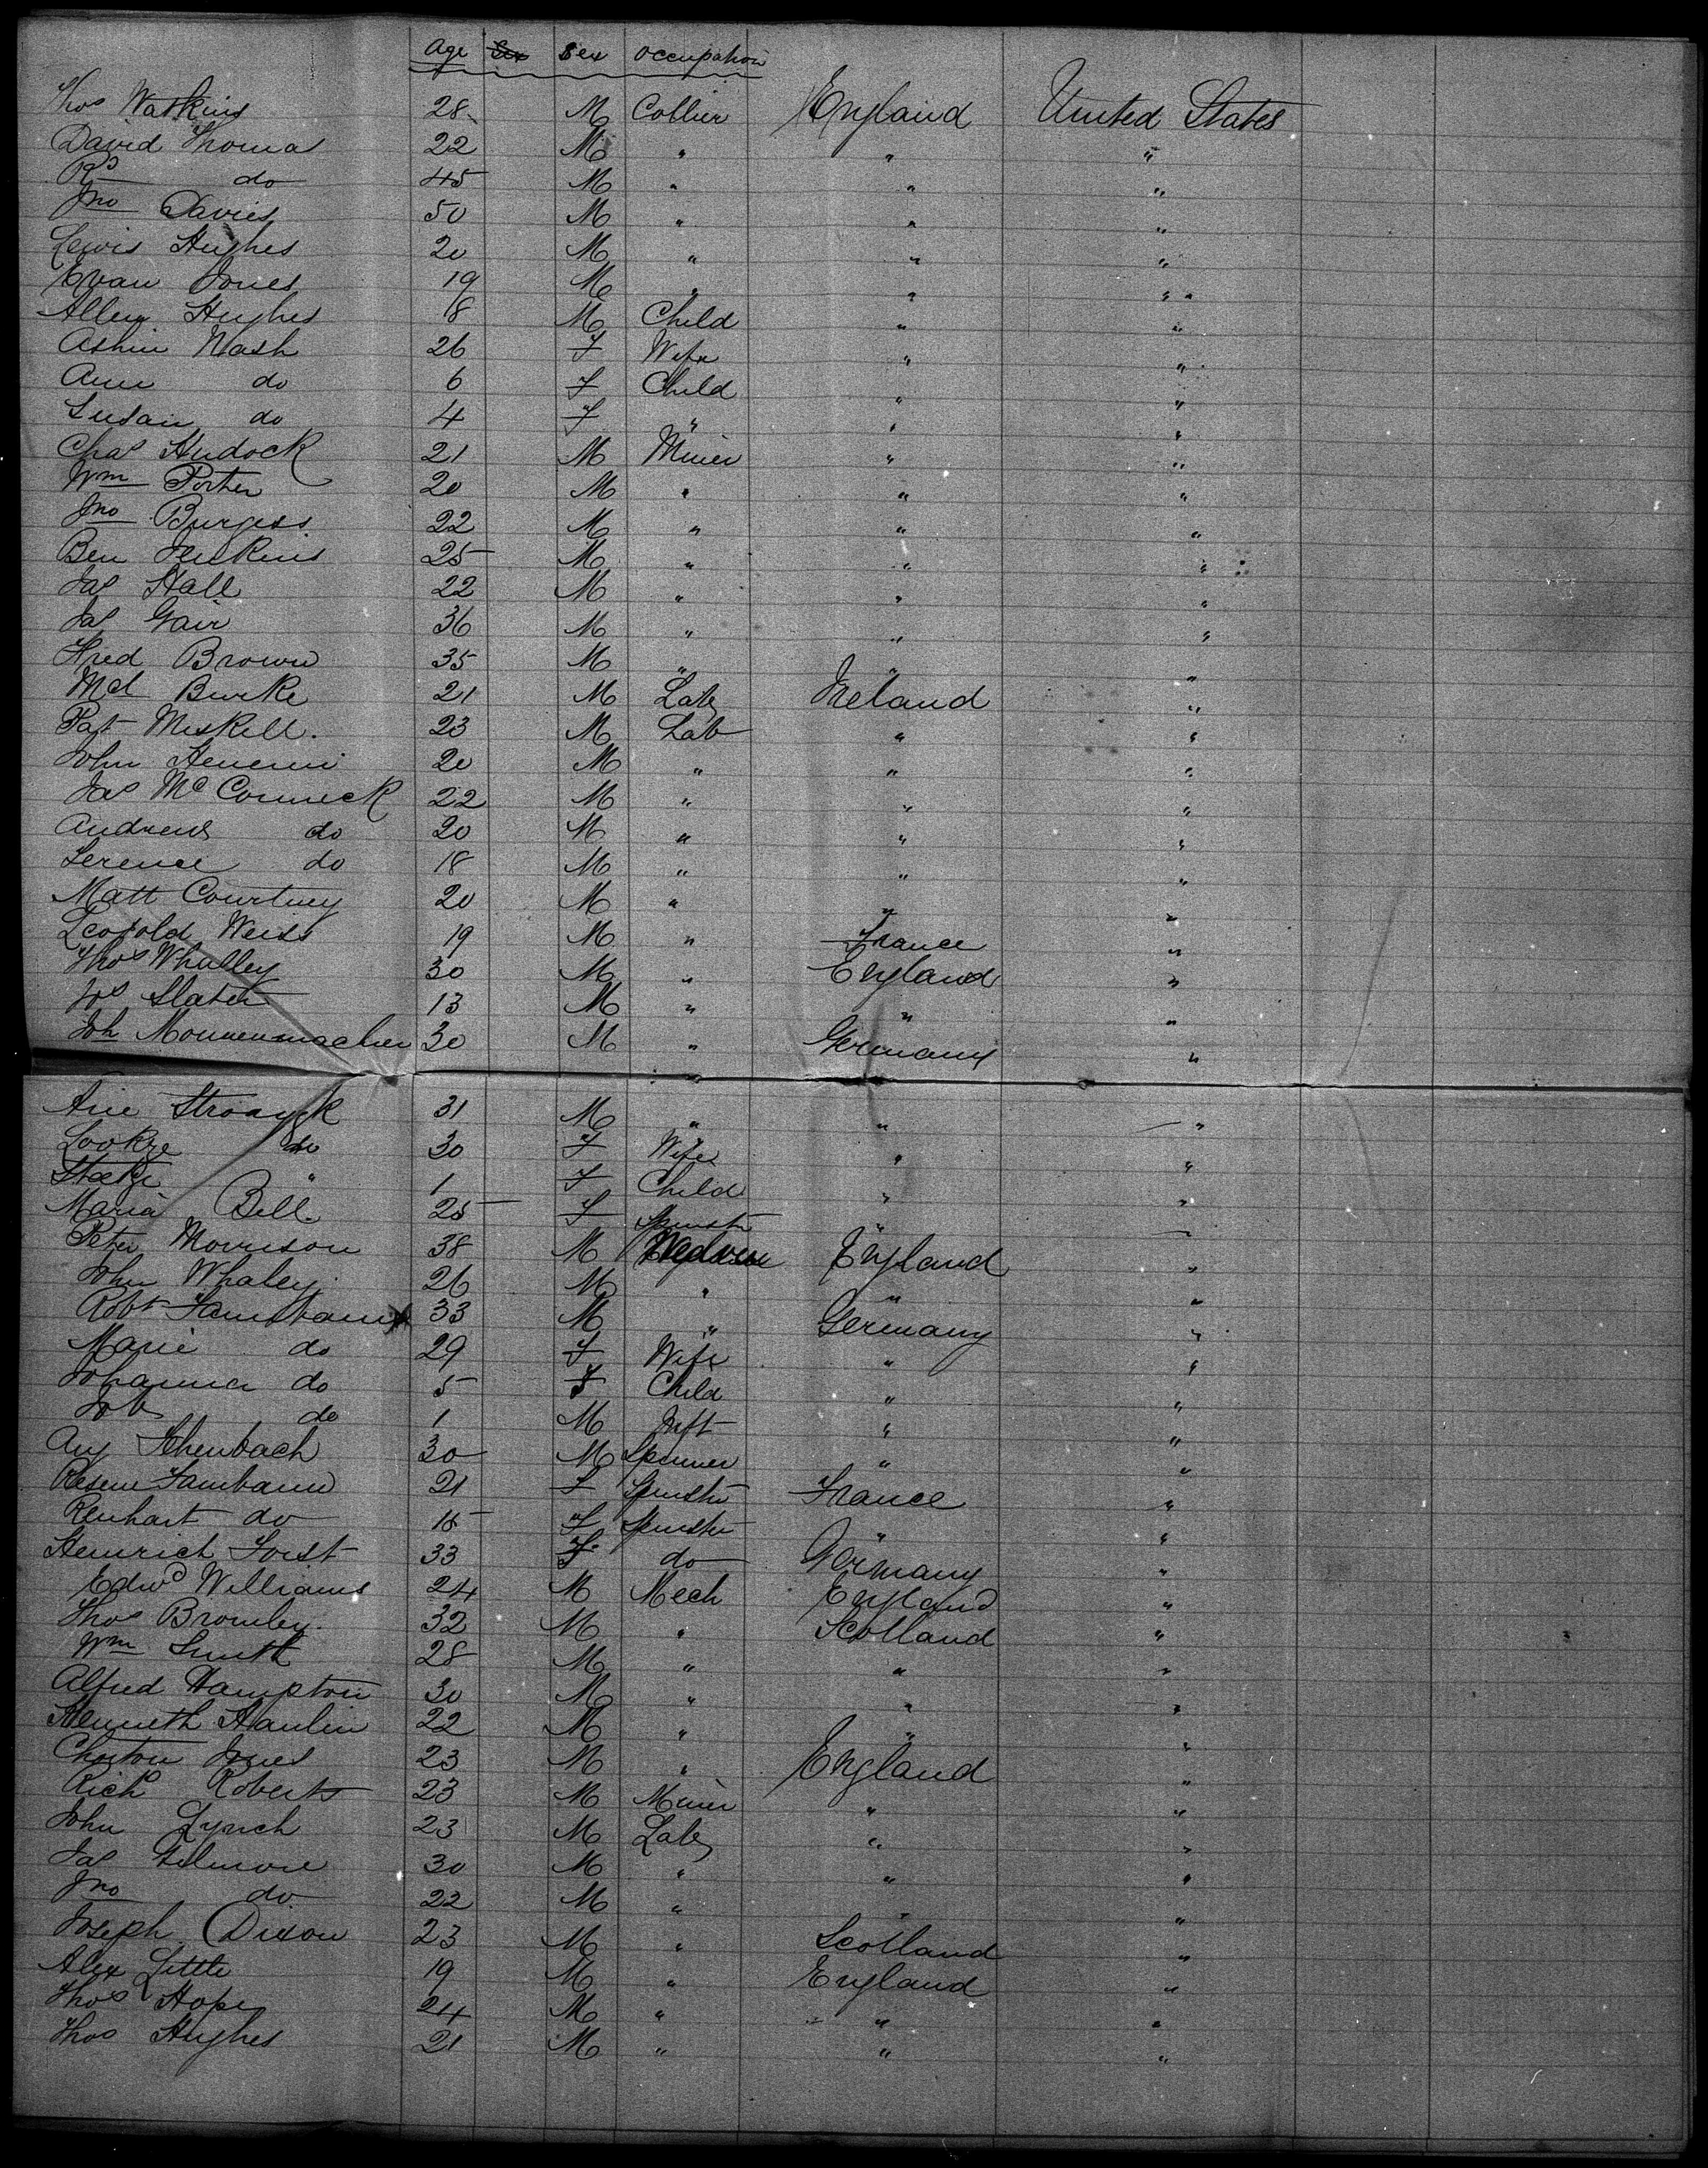 Age Sex Sex Occupation
Thos Watkins 28 M Collier England United States
David Thomas 22 M " " "
Rd do 45 M " " "
Jno Davies 50 M " " "
Lewis Hughes 20 M " " "
Evan Jones 19 M " " "
Allen Hughes 8 M Child " "
Nash 26 F Wife " "
Ann do 6 F Child " "
Susan do 4 F " " "
Chas Hudock 21 M Miner " "
Wm Porter 20 M " " "
Jno Burgess 22 M " " "
Ben Jenkins 25 M " " "
Jas Hall 22 M " " "
Jas Gair 36 M " " "
Fred Brown 35 M " " "
Mcl Burke 21 M Labr Ireland "
Pat Meskell. 23 M Lab " "
John 20 M " " "
Jas McCormeck 22 M " " "
Andrew do 20 M " " "
Terence do 18 M " " "
Matt Courtney 20 M " " "
Leopold Weiss 19 M " France "
Thos Whalley 30 M " England "
Jos Slater 13 M " " "
Joh Monnenmacher 30 M " Germany "
Arie 31 M " " "
do 30 F Wife " "
" 1 F Child " "
Maria Bell 25 F Spinstr " "
Peter Morrison 38 M England "
John Whaley 26 M " " "
Robt 33 M " Germany "
Marie do 29 F Wife " "
Johanna do 5 F Child " "
Job do 1 M Inft " "
Aug 30 M Spinner " "
21 F Spinstr France "
Renhart do 18 F Spinstr " "
Heinrich Forst 33 F do Germany "
Edwd Williams 24 M Mech England "
Thos Bromley. 32 M " Scotland "
Wm Smith 28 M " " "
Alfred Hampton 30 M " " "
Kenneth Hanlin 22 M " " "
Jones 23 M " England "
Richd Roberts 23 M Miner " "
John Lynch 23 M Labr " "
Jas Gilmore 30 M " " "
Jno do 22 M " " "
Joseph Dixon 23 M " Scotland "
Alex Little 19 M " England "
Thos Hope 24 M " " "
Thos Hughes 21 M " " "